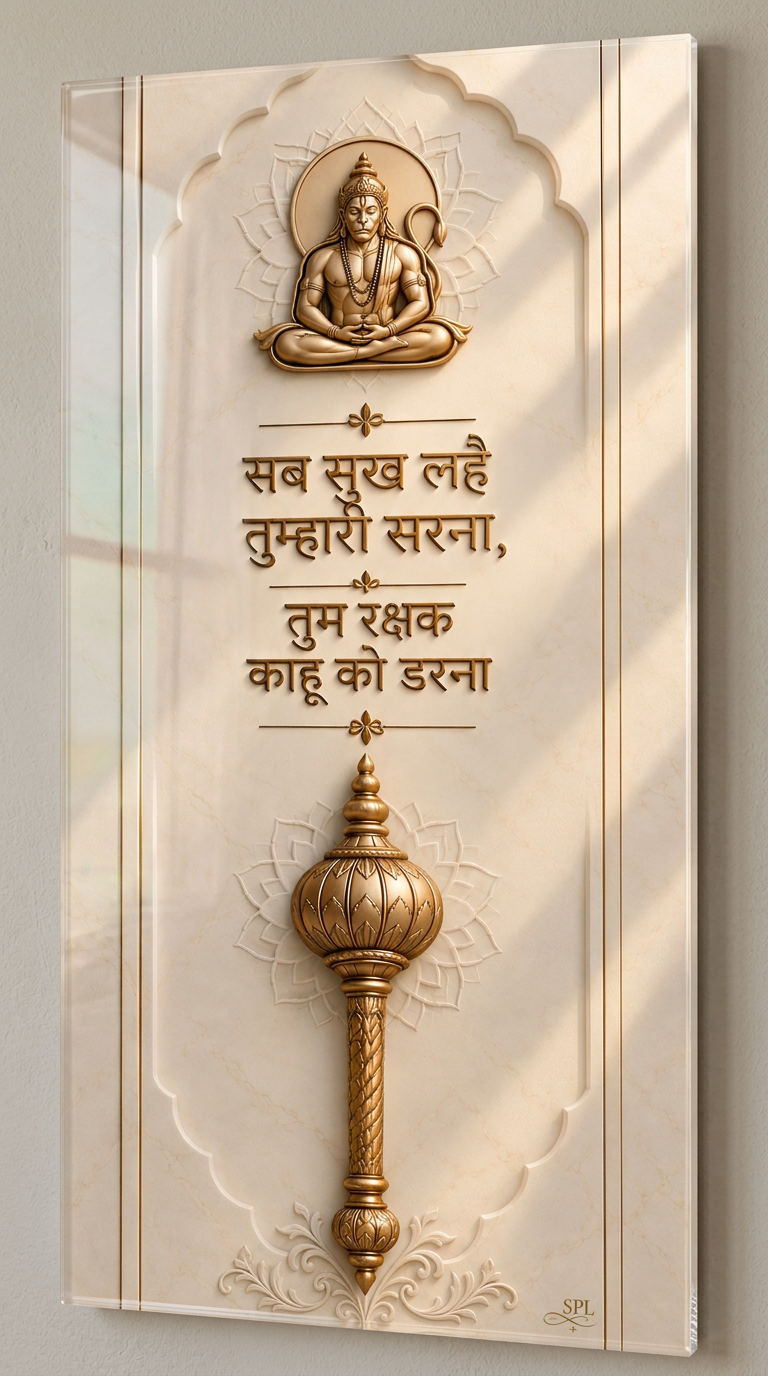 सब सुख लहै
तुम्हारी सरना,
तुम रक्षक
काहू को डरना
SPL